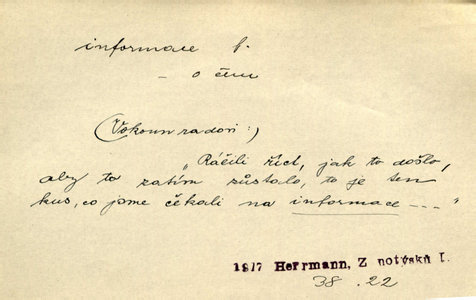 informace f.
– o čem
(Vokoun radoví:)
„Ráčili říct, jak to došlo,
aby to zatím zůstalo, to je ten
kus, co jsme čekali na informace –––"
1917 Herrmann, Z notýsků I.
38.22